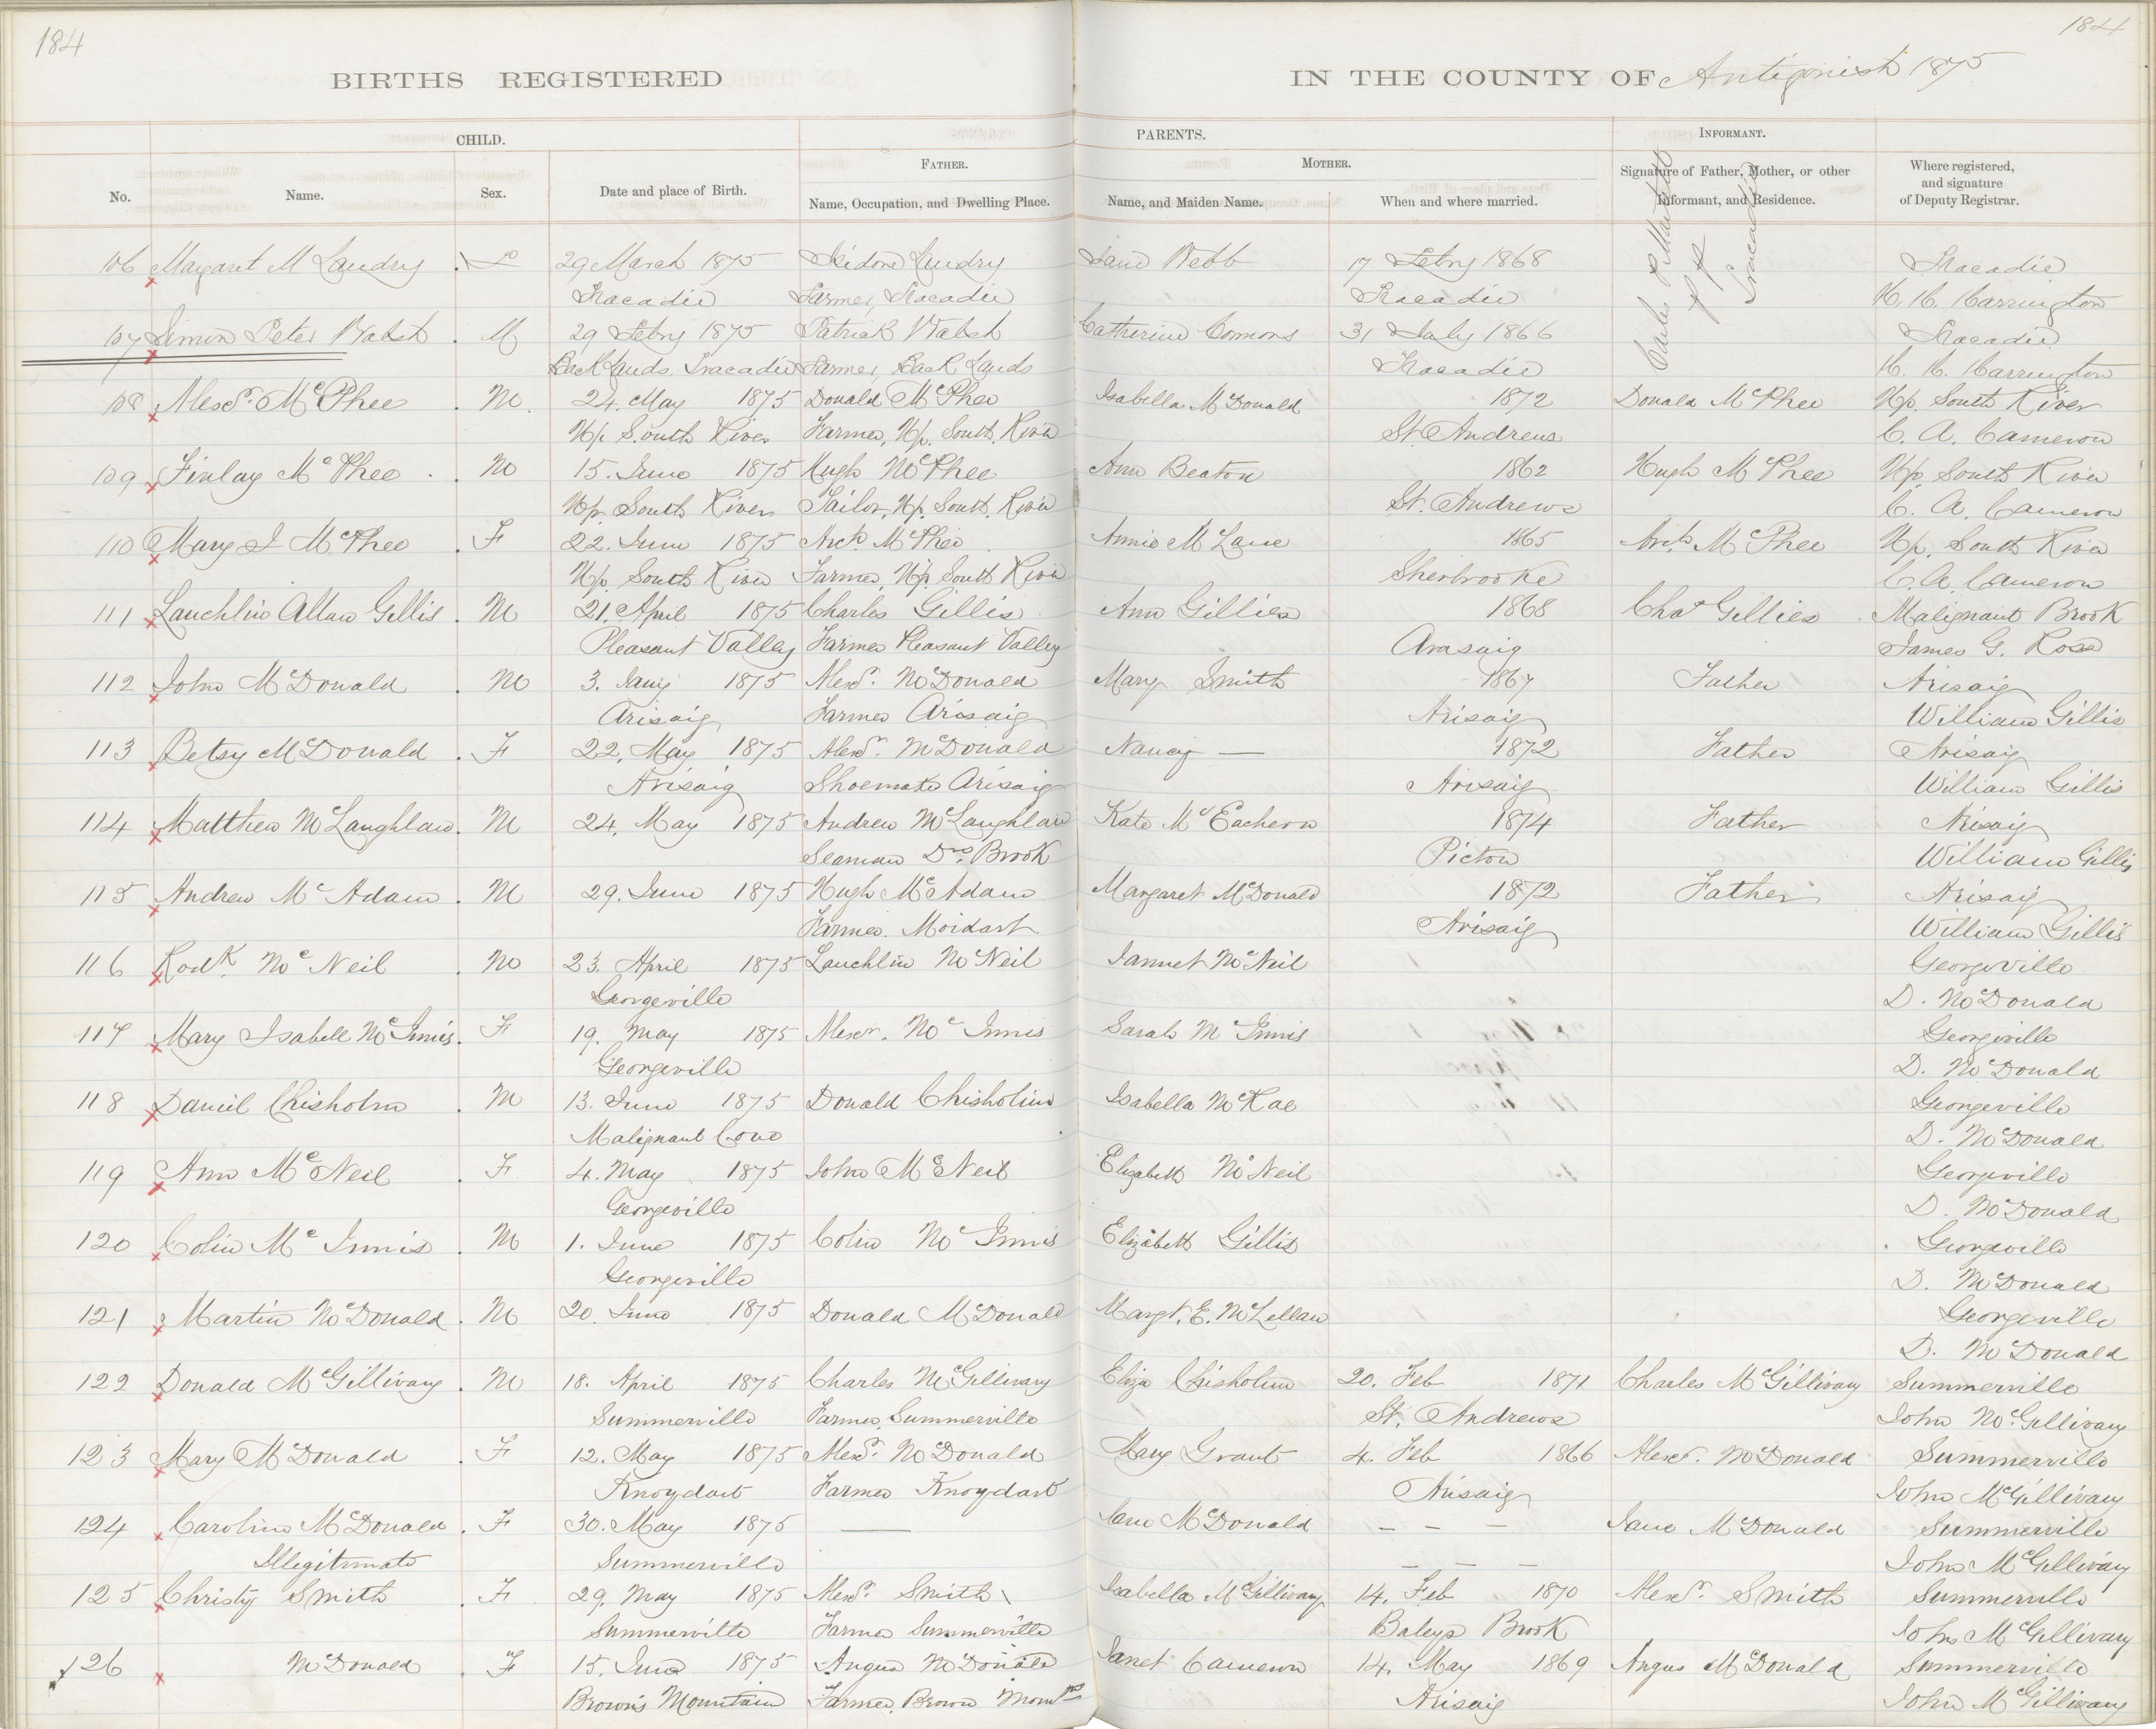 184
184
BIRTHS REGISTERED
IN THE COUNTY OF Antigonish 1875
CHILD.
PARENTS.
INFORMANT.
FATHER.
MOTHER.
No.
Name.
Sex.
Date and place of Birth.
Name, Occupation, and Dwelling Place.
Name, and Maiden Name.
When and where married.
Signature of Father, Mother, or other
Informant, and Residence.
Where registered,
and signature
of Deputy Registrar.
106 Margaret M Landry F 29 March 1875 Isidore Landry Jane Webb 17 Febry 1868 Tracadie
Tracadie Farmer, Tracadie Tracadie H. H. Harrington
J P Tracadie
107 Simon Peter Walsh M 29 Febry 1875 Patrick Walsh Catherine Comons 31 July 1866 Tracadie
Back Lands Tracadie Farmer, Back Lands Tracadie H. H. Harrington
108 Alexr. McPhee M. 24. May 1875 Donald McPhee Isabella McDonald 1872 Donald McPhee Up. South River
Up. South River Farmer, Up. South River St Andrews C. A. Cameron
109 Finlay McPhee M 15. June 1875 Hugh McPhee Ann Beaton 1862 Hugh McPhee Up. South River
Up. South River Tailor, Up. South River St. Andrews C. A. Cameron
110 Mary J McPhee F 22. June 1875 Arch. McPhee Annie McLane 1865 Arch. McPhee Up. South River
Up. South River Farmer, Up. South River Sherbrooke C. A. Cameron
111 Lauchlin Allan Gillis M 21. April 1875 Charles Gillis Ann Gillies 1868 Chas Gillies Malignant Brook
Pleasant Valley Farmer Pleasant Valley Arasaig James G. Ross
112 John McDonald M 3. Jany 1875 Alexr. McDonald Mary Smith 1867 Father Arisaig
Arisaig Farmer Arisaig Arisaig William Gillis
113 Betsy McDonald F 22. May 1875 Alexr. McDonald Nancy — 1872 Father Arisaig
Arisaig Shoemaker Arisaig Arisaig William Gillis
114 Matthew McLaughlan M 24. May 1875 Andrew McLaughlan Kate McEachern 1874 Father Arisaig
Seaman Drs. Brook Pictou William Gillis
115 Andrew McAdam M 29. June 1875 Hugh McAdam Margaret McDonald 1872 Father Arisaig
Farmer. Moidart Arisaig William Gillis
116 Rodk. McNeil M 23. April 1875 Lauchlin McNeil Jannet McNeil Georgeville
Georgeville D. McDonald
117 Mary Isabell McInnis F 19. May 1875 Alexr. McInnis Sarah McInnis Georgeville
Georgeville D. McDonald
118 Daniel Chisholm M 13. June 1875 Donald Chisholm Isabella McRae Georgeville
Malignant Cove D. McDonald
119 Ann McNeil F 4. May 1875 John McNeil Elizabeth McNeil Georgeville
Georgeville D. McDonald
120 Colin McInnis M 1. June 1875 Colin McInnis Elizabeth Gillis Georgeville
Georgeville D. McDonald
121 Martin McDonald M 20. June 1875 Donald McDonald Margt. E. McLellan Georgeville
D. McDonald
122 Donald McGillivary M 18. April 1875 Charles McGillivary Eliza Chisholm 20. Feb 1871 Charles McGillivary Summerville
Summerville Farmer Summerville St. Andrews John McGillivary
123 Mary McDonald F 12. May 1875 Alexr. McDonald Mary Grant 4. Feb 1866 Alexr. McDonald Summerville
Knoydart Farmer Knoydart Arisaig John McGillivary
124 Caroline McDonald F 30. May 1875 — Jane McDonald – – – Jane McDonald Summerville
Illegitimate Summerville – – – John McGillivary
125 Christy Smith F 29. May 1875 Alexr. Smith Isabella McGillivary 14. Feb 1870 Alexr. Smith Summerville
Summerville Farmer Summerville Baleys Brook John McGillivary
126 McDonald F 15. June 1875 Angus McDonald Janet Cameron 14. May 1869 Angus McDonald Summerville
Brown's Mountain Farmer, Brown Mountn Arisaig John McGillivary